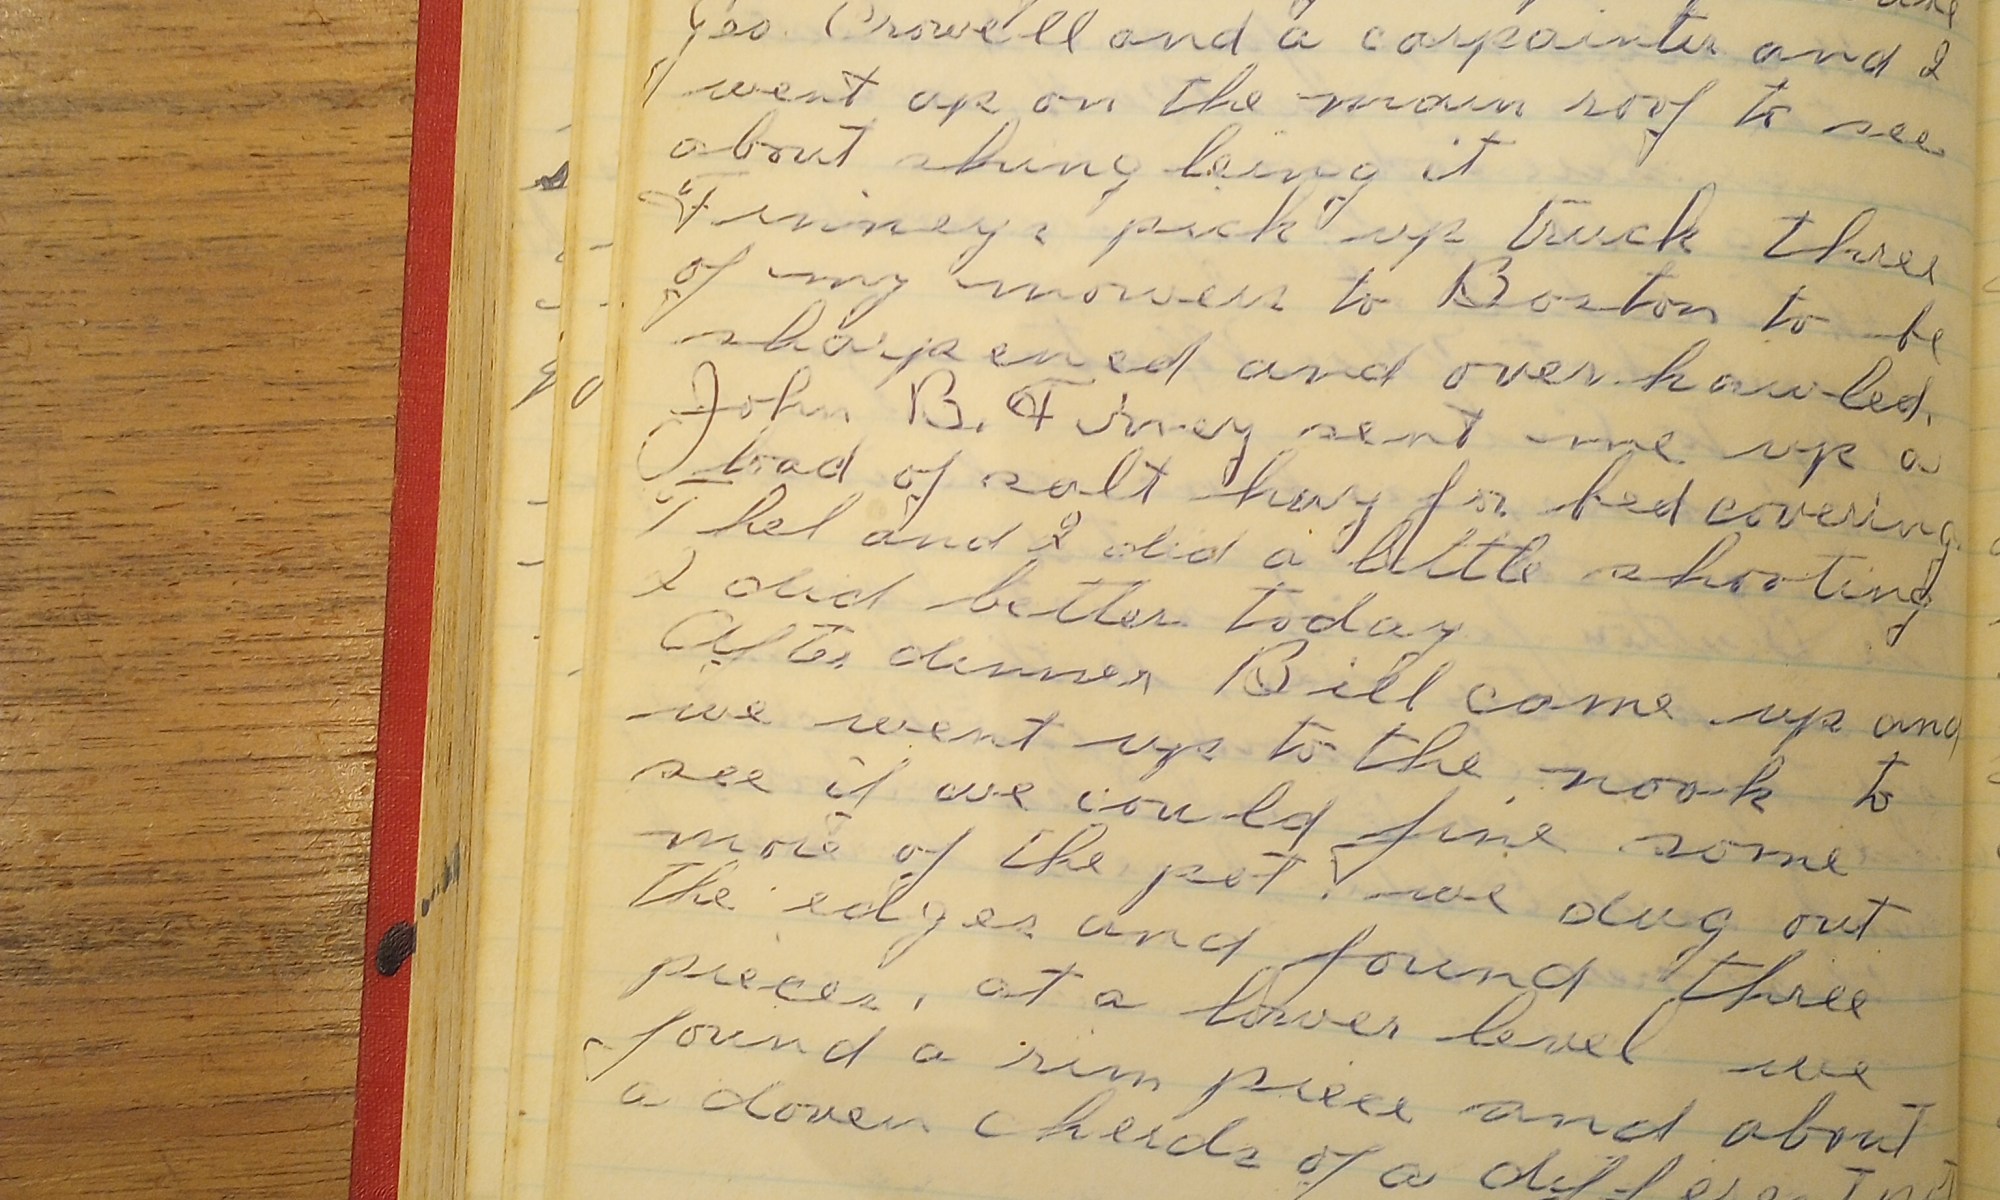 Geo. Crowell and a carpainter and I
went up on the main roof to see
about shingleing it
Finneys pick up truck three
of my mowers to Boston to be
sharpened and over hawled.
John B. Finney sent me up a
load of salt hay for bed covering.
Thel and I did a little shooting
I did better today
After dinner Bill came up and
we went up to the nook to
see if we could fine some
more of the pot. we dug out
the edges and found three
pieces, at a lower level we
found a rim piece and about
a dozen cherds of a different